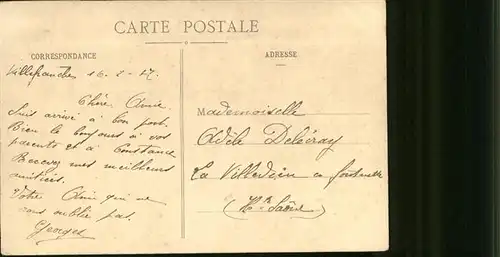 CARTE POSTALE
CORRESPONDANCE
ADRESSE
Villefranche 16-2-17.
Chère Amie
Suis arrivé à bon port.
Bien le bonjour à vos
parents et à Constance
Recevez mes meilleures
amitiés.
Votre Ami qui ne
vous oublie pas.
Georges
Mademoiselle
Adèle
La Villedieu en
(Hte Saône)